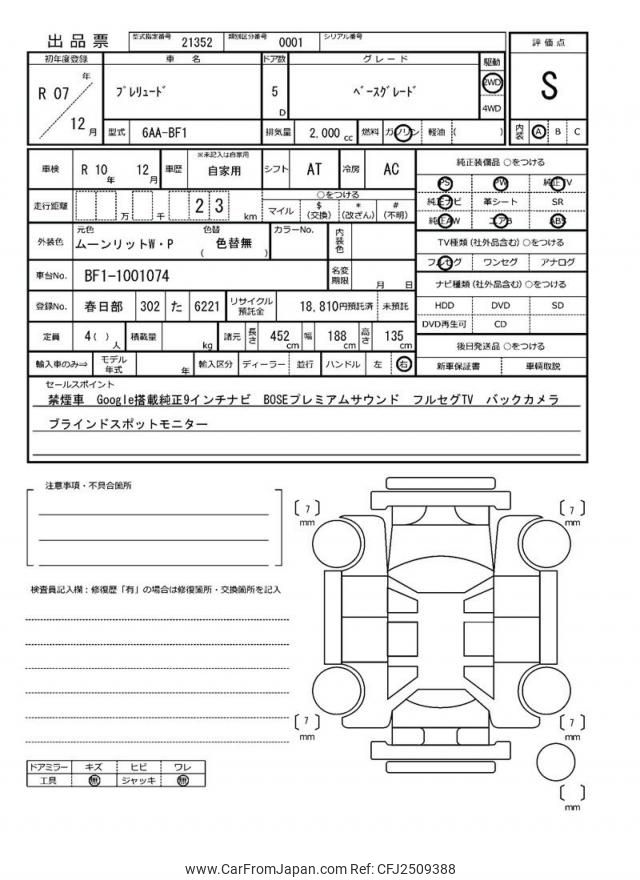 出品票 型式指定番号 21352 類別区分番号 0001 シリアル番号
初年度登録 車名 ドア数 グレード 駆動 評価点
R 07 年 12 月 プレリュード 5 D ベースグレード 2WD 4WD S
型式 6AA-BF1 排気量 2,000 cc 燃料 ガソリン 軽油 ( ) 内装 A B C
車検 R 10 年 12 月 車歴 ※未記入は自家用 自家用 シフト AT 冷房 AC
純正装備品 ○をつける
PS PW 純正TV
純正ナビ 革シート SR
純正AW エアB ABS
走行距離 万 千 2 3 km
○をつける
マイル $ (交換) * (改ざん) # (不明)
外装色 元色 ムーンリットW・P 色替 ( 色替無 ) カラーNo. 内装色
TV種類 (社外品含む) ○をつける
フルセグ ワンセグ アナログ
車台No. BF1-1001074 名変期限 月 日
ナビ種類 (社外品含む) ○をつける
HDD DVD SD
DVD再生可 CD
登録No. 春日部 302 た 6221 リサイクル預託金 18,810円預託済 未預託
定員 4( ) 人 積載量 kg 諸元 長さ 452 cm 幅 188 cm 高さ 135 cm
後日発送品 ○をつける
新車保証書 車輌取説
輸入車のみ⇒ モデル年式 年 輸入区分 ディーラー 並行 ハンドル 左 右
セールスポイント
禁煙車 Google搭載純正9インチナビ BOSEプレミアムサウンド フルセグTV バックカメラ
ブラインドスポットモニター
注意事項・不具合箇所
検査員記入欄：修復歴「有」の場合は修復箇所・交換箇所を記入
〔 7 〕 mm
〔 7 〕 mm
〔 7 〕 mm
〔 7 〕 mm
〔 〕 mm
ドアミラー キズ ヒビ ワレ
工具 無 ジャッキ 無
www.CarFromJapan.com Ref: CFJ2509388